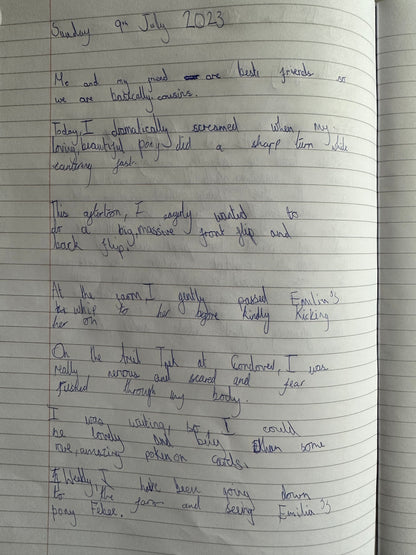 Sunday 9th July 2023
Me and my friend are best friends so
we are basically cousins.
Today, I dramatically screamed when my
loving, beautiful pony did a sharp turn while
cantering fast.
This afertoon, I eagerly wanted to
do a big, massive front flip and
back flip.
At the I gently passed Emilia's
whip to her before kindly kicking
her on
On the trail Trek at Condover, I was
really nervous and scared and fear
rushed through my body.
I was writing, I could
be lovely and buy Ethan some
rare, amazing pokemon cards.
Weekly, I have been going down
to the farm and seeing Emilia's
pony Febee.